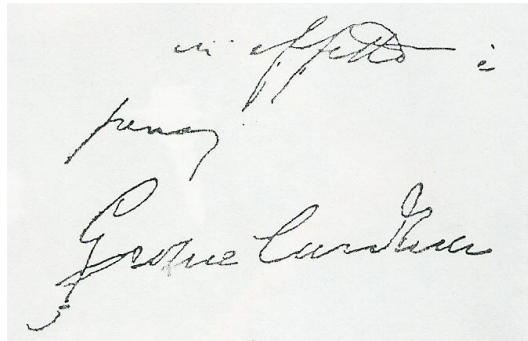 in effetto è
penna
Giosue Carducci